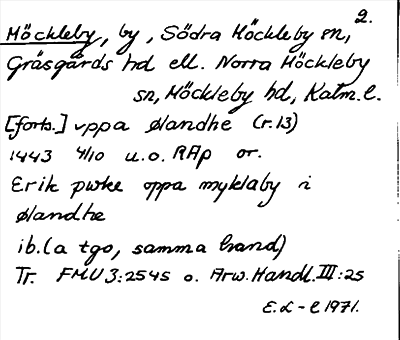 2.
Möckleby, by, Södra Möckleby sn,
Gräsgårds hd ell. Norra Möckleby
sn, Möckleby hd, Kalm. l.
[forts.] vppa ølandhe (r. 13)
1443 4/10 u.o. RAp or.
Erik pwke oppa myklaby i
ølandhe
ib. (a tgo, samma hand)
Tr. FMU 3:2545 o. Arw. Handl. III:25
E. L-l 1971.